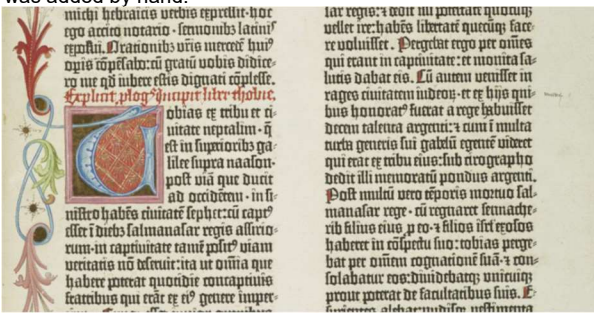 was added by hand.
michi hebraicis verbis expressit·hoc
ego accito notario·sermonibꝫ latinis
exposui. Orationibꝫ vr̄is mercedē huiꝰ
oꝑis cōpēsabo: cū gratū vobis didice-
ro me qd̄ iubere estis dignati cōplesse.
Explicit plogꝰ incipit liber thobie.
Tobias ex tribu et ci-
uitate neptalim·q̄
est in superiorībꝰ ga-
lilee supra naason·
post viā que ducit
ad occidētem·in si-
nistro habēs ciuitatē sephet: cū captꝰ
esset ī diebꝫ salmanasar regis assirio-
rum·in captiuitate tamē positꝰ viam
veritatis nō deseruit: ita ut oīnia que
habere poterat quotidie concaptiuis
fratribus qui erāt ex eiꝰ genere imper-
lar regis: ⁊ dedit illi potestatē quocūqꝫ
vellet ire: habēs libertatē quecūqꝫ face-
re voluisset. Pergebat ergo per om̄es
qui erant in captiuitate: et monita sa-
lutis dabat eis. Cū autem venisset in
rages ciuitatem iudeoꝝ· et ex hijs qui-
bus honoratꝰ fuerat a rege habuisset
decem talenta argenti: ⁊ cum ī multa
turba generis sui gabelū egentē videret
qui erat ex tribu eius: sub cirographo
dedit illi memoratū pondus argenti.
Post multū vero tēporis mortuo sal-
manasar rege·cū regnaret sennache-
rib filius eius ꝓ eo·⁊ filios isrl̄ exosos
haberet in cōspectu suo: tobias perge-
bat per om̄em cognationē suā·⁊ con-
solabatur eos: diuidebatqꝫ unicuiqꝫ
prout poterat de facultatibus suis. E-
surientes alebat: nudisqꝫ vestimenta